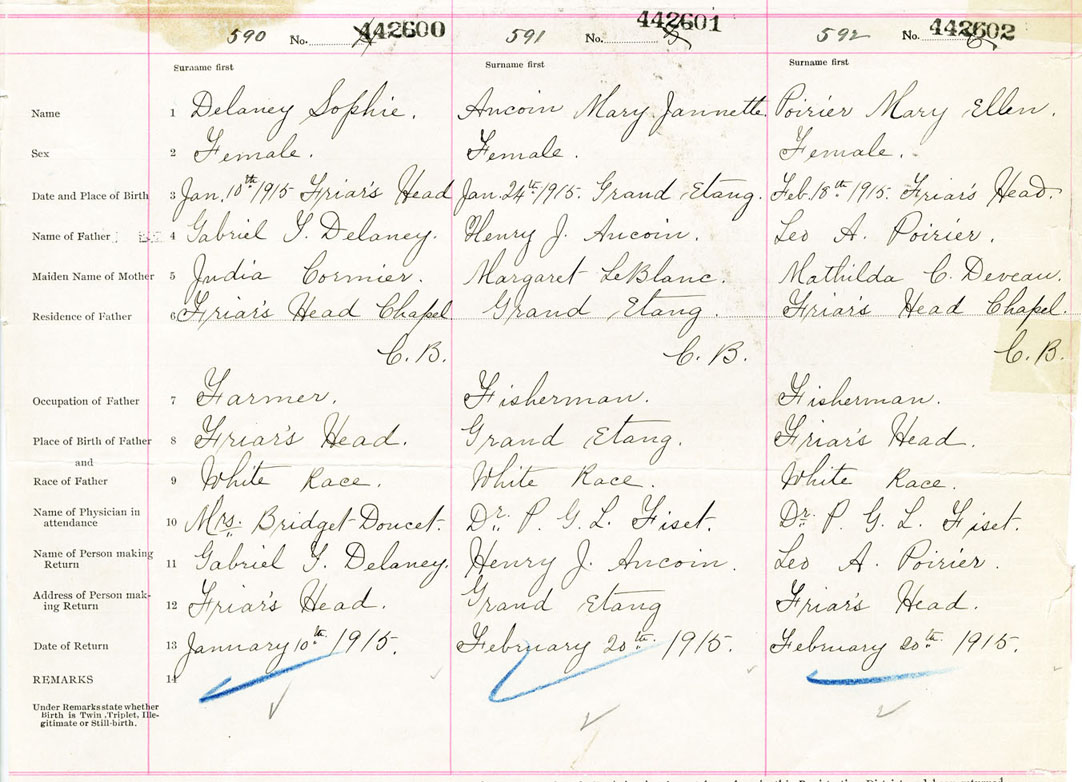 590 No. 442600 591 No. 442601 592 No. 442602
Surname first Surname first Surname first
Name 1 Delaney Sophie. Aucoin Mary Jannette. Poirier Mary Ellen.
Sex 2 Female. Female. Female.
Date and Place of Birth 3 Jan. 10th 1915 Friar's Head Jan. 24th 1915. Grand Etang. Feb. 18th 1915. Friar's Head.
Name of Father 4 Gabriel Y. Delaney. Henry J. Aucoin. Leo A. Poirier.
Maiden Name of Mother 5 Judia Cormier. Margaret LeBlanc. Mathilda C. Deveau.
Residence of Father 6 Friar's Head Chapel Grand Etang. Friar's Head Chapel.
C. B. C. B. C. B.
Occupation of Father 7 Farmer. Fisherman. Fisherman.
Place of Birth of Father 8 Friar's Head. Grand Etang. Friar's Head.
and
Race of Father 9 White Race. White Race. White Race.
Name of Physician in
attendance 10 Mrs. Bridget Doucet. Dr. P. G. L. Fiset. Dr. P. G. L. Fiset.
Name of Person making
Return 11 Gabriel Y. Delaney. Henry J. Aucoin. Leo A. Poirier.
Address of Person mak-
ing Return 12 Friar's Head. Grand Etang Friar's Head.
Date of Return 13 January 10th 1915. February 20th 1915. February 20th 1915.
REMARKS 14
Under Remarks state whether
Birth is Twin, Triplet, Ille-
gitimate or Still-birth.